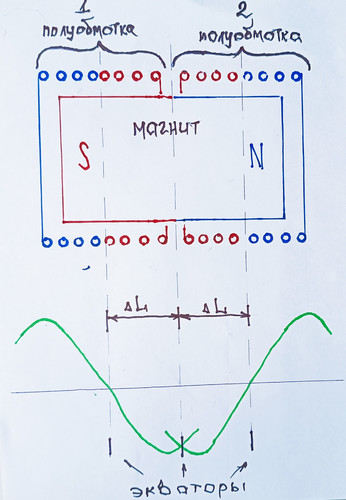 1
полуобмотка
2
полуобмотка
МАГНИТ
S
N
ΔL
ΔL
ЭКВАТОРЫ